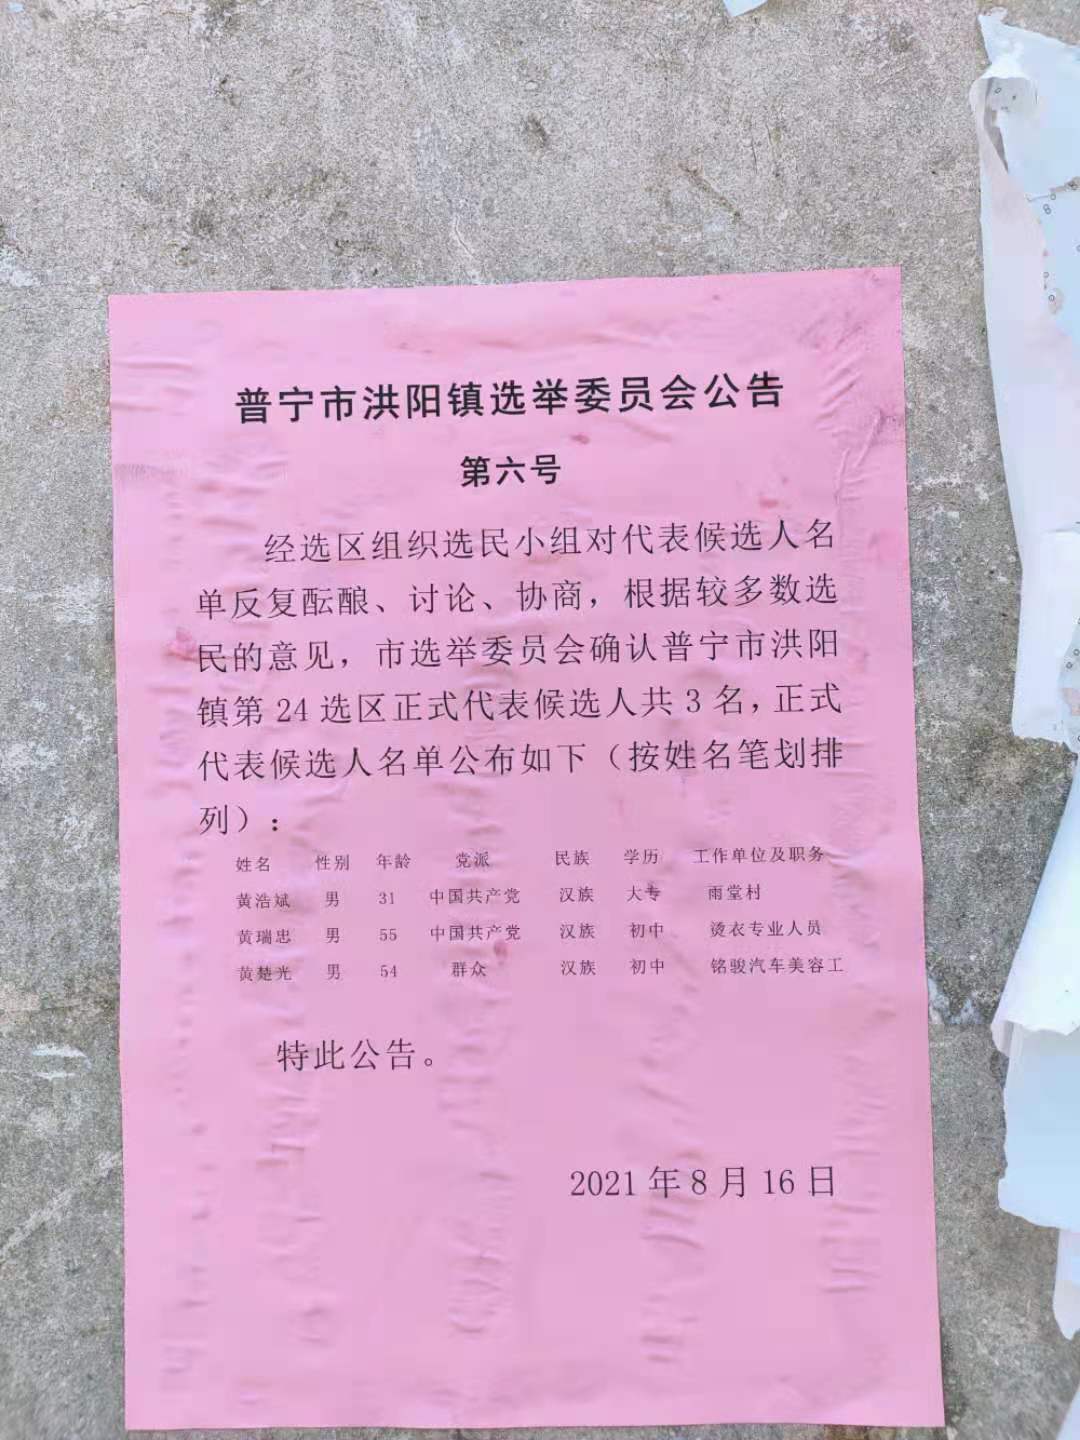 普宁市洪阳镇选举委员会公告
第六号
经选区组织选民小组对代表候选人名
单反复酝酿、讨论、协商，根据较多数选
民的意见，市选举委员会确认普宁市洪阳
镇第 24 选区正式代表候选人共 3 名，正式
代表候选人名单公布如下（按姓名笔划排
列）：
姓名 性别 年龄 党派 民族 学历 工作单位及职务
黄浩斌 男 31 中国共产党 汉族 大专 雨堂村
黄瑞忠 男 55 中国共产党 汉族 初中 烫衣专业人员
黄楚光 男 54 群众 汉族 初中 铭骏汽车美容工
特此公告。
2021 年 8 月 16 日